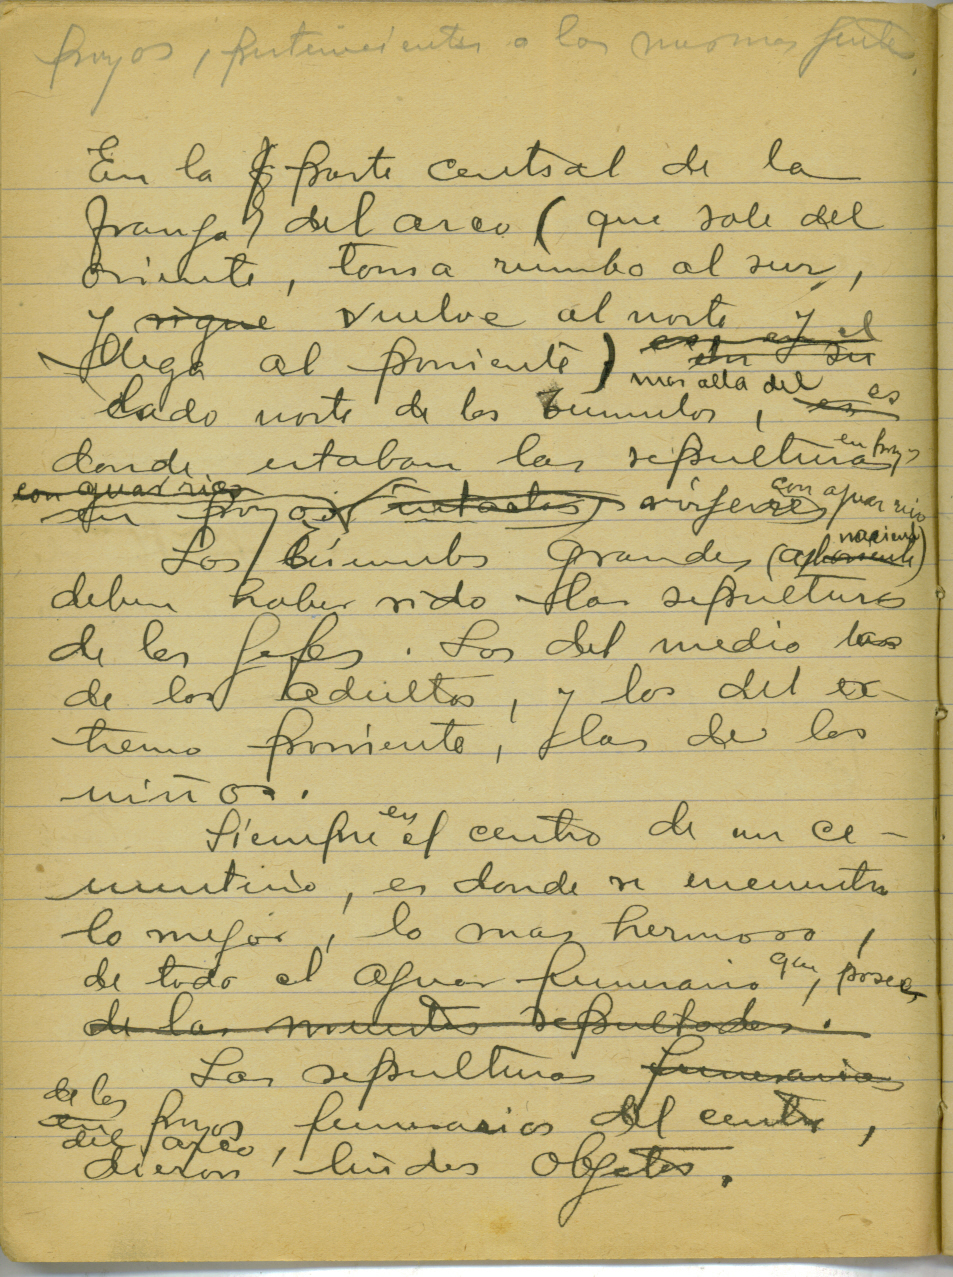 poyos, pertenecientes a las mismas gentes.
En la parte central de la
franja, del arco (que sale del
oriente, toma rumbo al sur,
y sigue vuelve al norte y
llega al poniente) en su
mas alta del es
lado norte de los tumulos,
donde estaban las sepulturas en poyos
con ajuar rico
en poyos intactas vírgenes con ajuar rico
Los túmulos grandes (naciente)
deben haber sido las sepulturas
de los jefes. Los del medio las
de los adultos, y los del ex-
tremo poniente, las de los
niños.
Siempre en el centro de un ce-
menterio, es donde se encuentra
lo mejor, lo mas hermoso,
de todo el ajuar funerario que, posee
de las muertos sepultados.
Las sepulturas funerarias
de los
en poyos funerarios del centro,
del arco,
dieron lindos objetos.